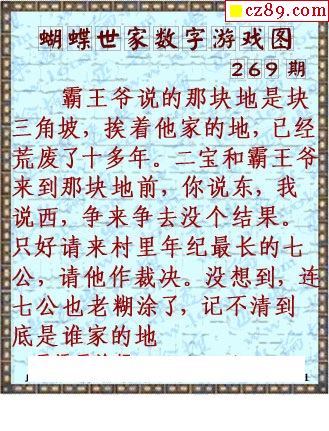 cz89.com
蝴蝶世家数字游戏图
269 期
霸王爷说的那块地是块
三角坡，挨着他家的地，已经
荒废了十多年。二宝和霸王爷
来到那块地前，你说东，我
说西，争来争去没个结果。
只好请来村里年纪最长的七
公，请他作裁决。没想到，连
七公也老糊涂了，记不清到
底是谁家的地